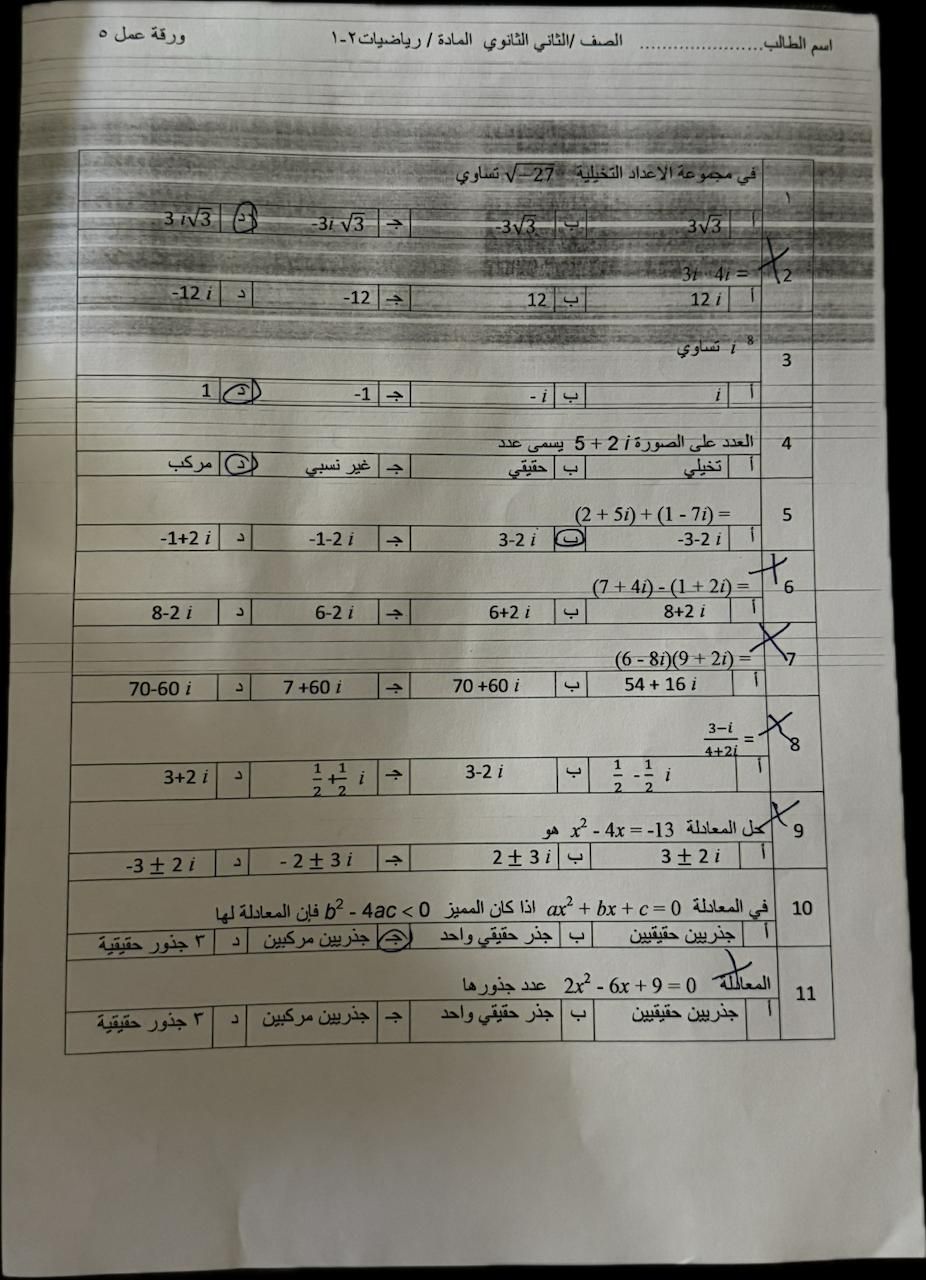 اسم الطالب...................... الصف /الثاني الثانوي المادة / رياضيات٢-١ ورقة عمل ٥
١ في مجموعة الاعداد التخيلية √−27 تساوي
أ 3√3 ب -3√3 جـ -3i √3 د 3 i√3
2 3i 4i =
أ 12 i ب 12 جـ -12 د -12 i
3 i ⁸ تساوي
أ i ب - i جـ -1 د 1
4 العدد على الصورة 5 + 2 i يسمى عدد
أ تخيلي ب حقيقي جـ غير نسبي د مركب
5 (2 + 5i) + (1 - 7i) =
أ -3-2 i ب 3-2 i جـ -1-2 i د -1+2 i
6 (7 + 4i) - (1 + 2i) =
أ 8+2 i ب 6+2 i جـ 6-2 i د 8-2 i
7 (6 - 8i)(9 + 2i) =
أ 54 + 16 i ب 70 +60 i جـ 7 +60 i د 70-60 i
8 3−i/4+2i =
أ 1/2 - 1/2 i ب 3-2 i جـ 1/2 + 1/2 i د 3+2 i
9 حل المعادلة x² - 4x = -13 هو
أ 3 ± 2 i ب 2 ± 3 i جـ - 2 ± 3 i د -3 ± 2 i
10 في المعادلة ax² + bx + c = 0 اذا كان المميز b² - 4ac < 0 فإن المعادلة لها
أ جذريين حقيقيين ب جذر حقيقي واحد جـ جذريين مركبين د ٣ جذور حقيقية
11 المعادلة 2x² - 6x + 9 = 0 عدد جذورها
أ جذريين حقيقيين ب جذر حقيقي واحد جـ جذريين مركبين د ٣ جذور حقيقية